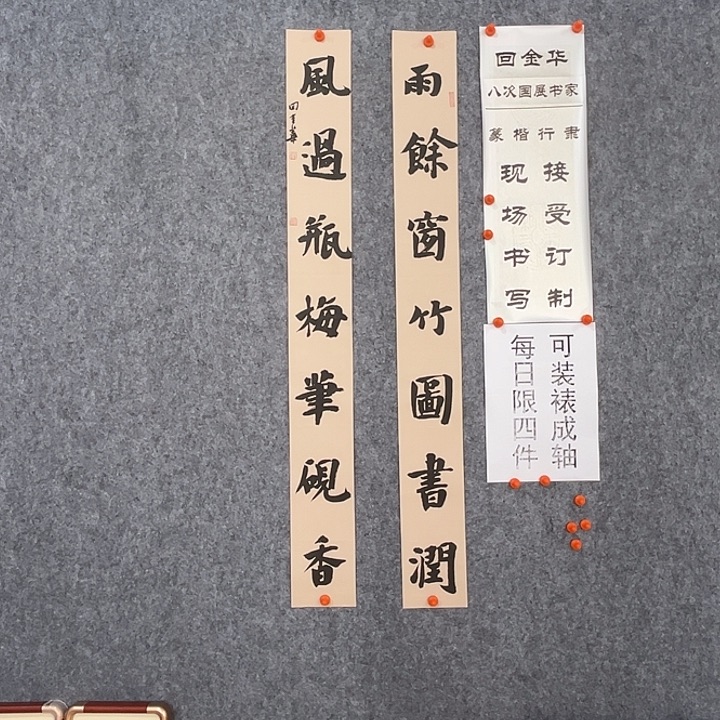 回金华
八次国展书家
篆楷行隶
接受订制
现场书写
可装裱成轴
每日限四件
雨餘窗竹圖書潤
風過瓶梅筆硯香
回金華